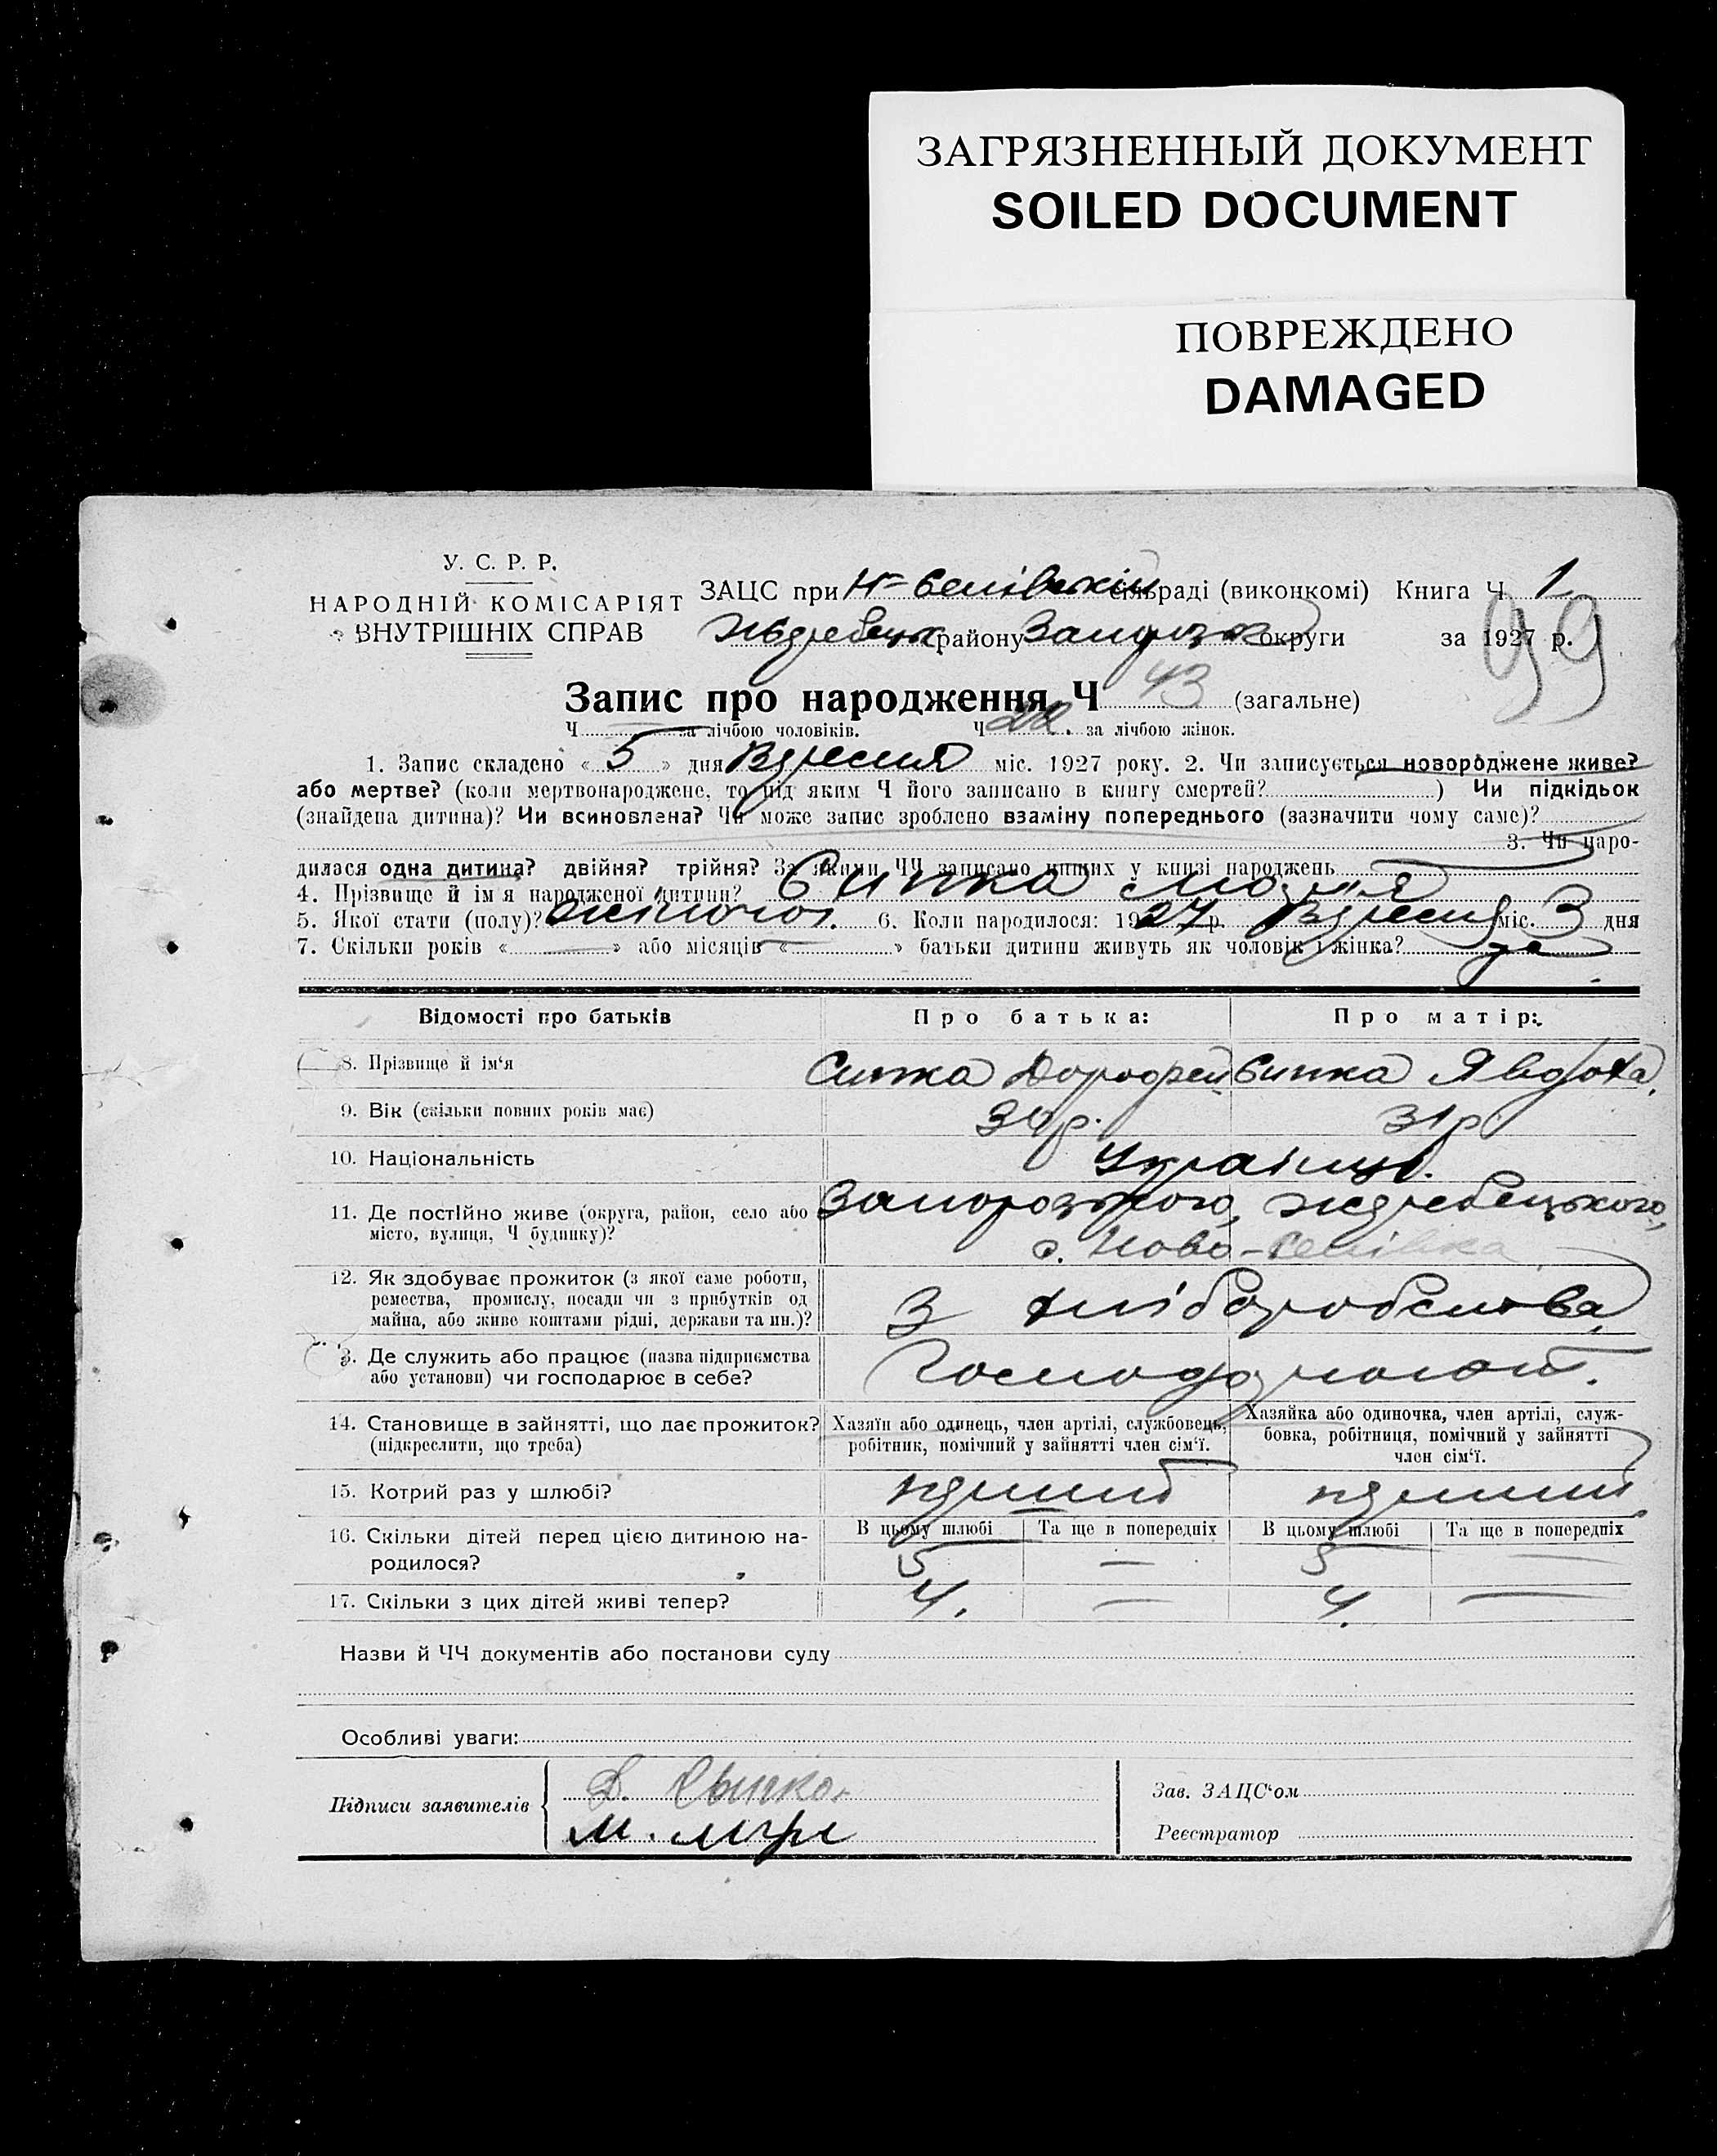 ЗАГРЯЗНЕННЫЙ ДОКУМЕНТ
SOILED DOCUMENT
ПОВРЕЖДЕНО
DAMAGED
У. С. Р. Р.
НАРОДНІЙ КОМІСАРІЯТ
ВНУТРІШНІХ СПРАВ
ЗАЦС при сільраді (виконкомі) Книга Ч 1
району округи за 1927 р.
99
Запис про народження Ч 43 (загальне)
Ч за лічбою чоловіків. Ч за лічбою жінок.
1. Запис складено « 5 » дня Вересня міс. 1927 року. 2. Чи записується новороджене живе?
або мертве? (коли мертвонароджене, то під яким Ч його записано в книгу смертей? ) Чи підкідьок
(знайдена дитина)? Чи всиновлена? Чи може запис зроблено взаміну попереднього (зазначити чому саме)?
3. Чи наро-
дилася одна дитина? двійня? трійня? За якими ЧЧ записано инших у книзі народжень
4. Прізвище й ім я народженої дитини? Сипка Марія
5. Якої стати (полу)? жіночої. 6. Коли народилося: 1927 р. Вересня міс. 3 дня
7. Скільки років « — » або місяців « — » батьки дитини живуть як чоловік і жінка? да
Відомості про батьків Про батька: Про матір:
8. Прізвище й ім‘я Сипка Дорофей Сипка Явдоха,
9. Вік (скільки повних років має) 31 р
10. Національність Українці.
11. Де постійно живе (округа, район, село або Запорозького, Жеребецького,
місто, вулиця, Ч будинку)? с. Ново-
12. Як здобуває прожиток (з якої саме роботи,
ремества, промислу, посади чи з прибутків од З хліборобства,
майна, або живе коштами рідні, держави та ин.)?
13. Де служить або працює (назва підприємства Господарюют.
або установи) чи господарює в себе?
14. Становище в зайнятті, що дає прожиток? Хазяїн або одинець, член артілі, службовець, Хазяйка або одиночка, член артілі, служ-
(підкреслити, що треба) робітник, помічний у зайнятті член сім‘ї. бовка, робітниця, помічний у зайнятті
член сім‘ї.
15. Котрий раз у шлюбі? перший перший
16. Скільки дітей перед цією дитиною на- В цьому шлюбі Та ще в попередніх В цьому шлюбі Та ще в попередніх
родилося? 5 — 5 —
17. Скільки з цих дітей живі тепер? 4. — 4. —
Назви й ЧЧ документів або постанови суду
Особливі уваги:
Підписи заявителів Д.
М.
Зав. ЗАЦС‘ом
Реєстратор